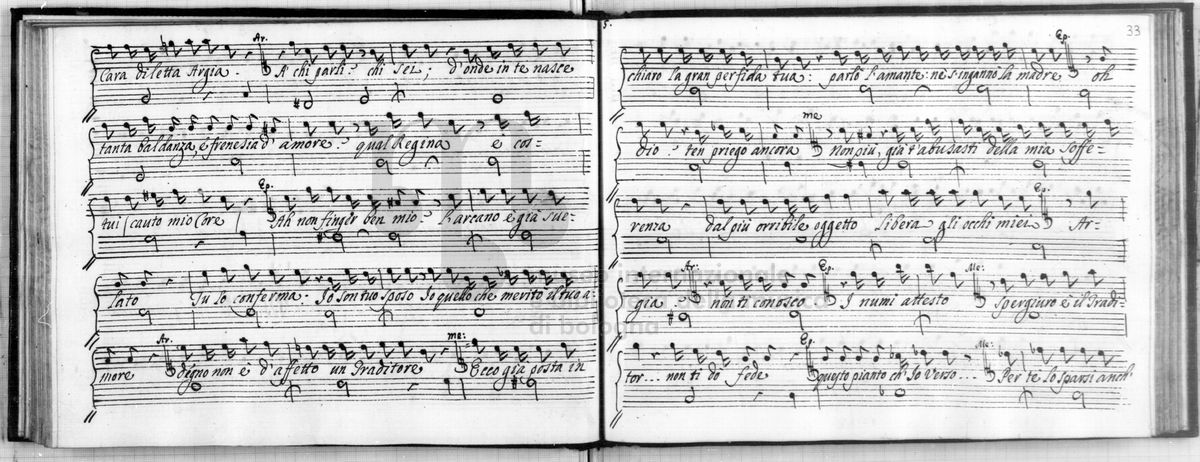 Ar.
Cara diletta Argia. A' chi parli? chi sei; d'onde in te nasce
tanta baldanza, e frenesia d' amore? qual Regina e cos=
Ep.
tui | cauto mio Core | Ah non finger ben mio? L'arcano e già sue=
lato Tu lo conferma. Io son tuo sposo Io quello che merito il tuo a=
Ar. me:
more Degno non è d'affetto un Traditore Ecco già posta in
5.
33
Ep.
chiaro la gran perfidia tua: parlò l'amante: ne s'ingannò la madre oh
me
Dio? ten priego ancora non più, già t'abusasti della mia soffe=
Ep.
renza dal più orribile oggetto libera gli occhi miei Ar=
Ar: Ep: Me:
gia? non ti conosco I numi attesto spergiuro è il Tradi=
Ep. Me:
tor... non ti dò fede questo pianto ch'Io verso... Per te lo sparsi anch'
internazionale
di bologna